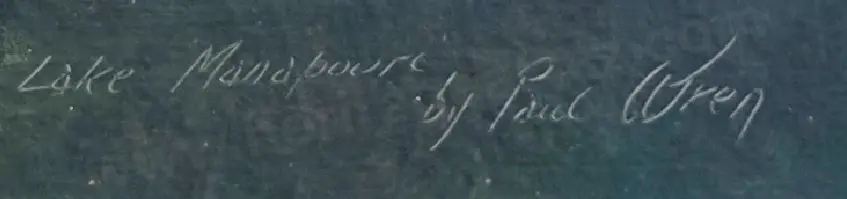 Lake Manapouri
by Paul Wren